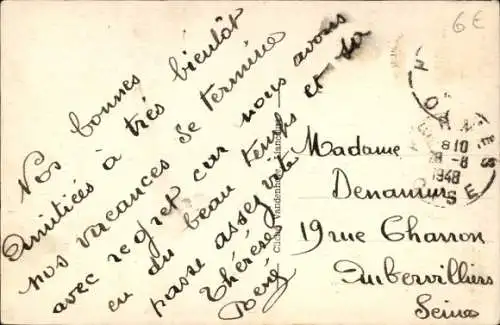 Nos bonnes
Amitiées à très bientôt
nos vacances se termine
avec regret car nous avons
eu du beau temps et sa
passe assez vite
Thérèse
René
Madame
Denamur
19 rue Charron
Aubervilliers
Seine
6€
8 10
28-8
1948
OISE